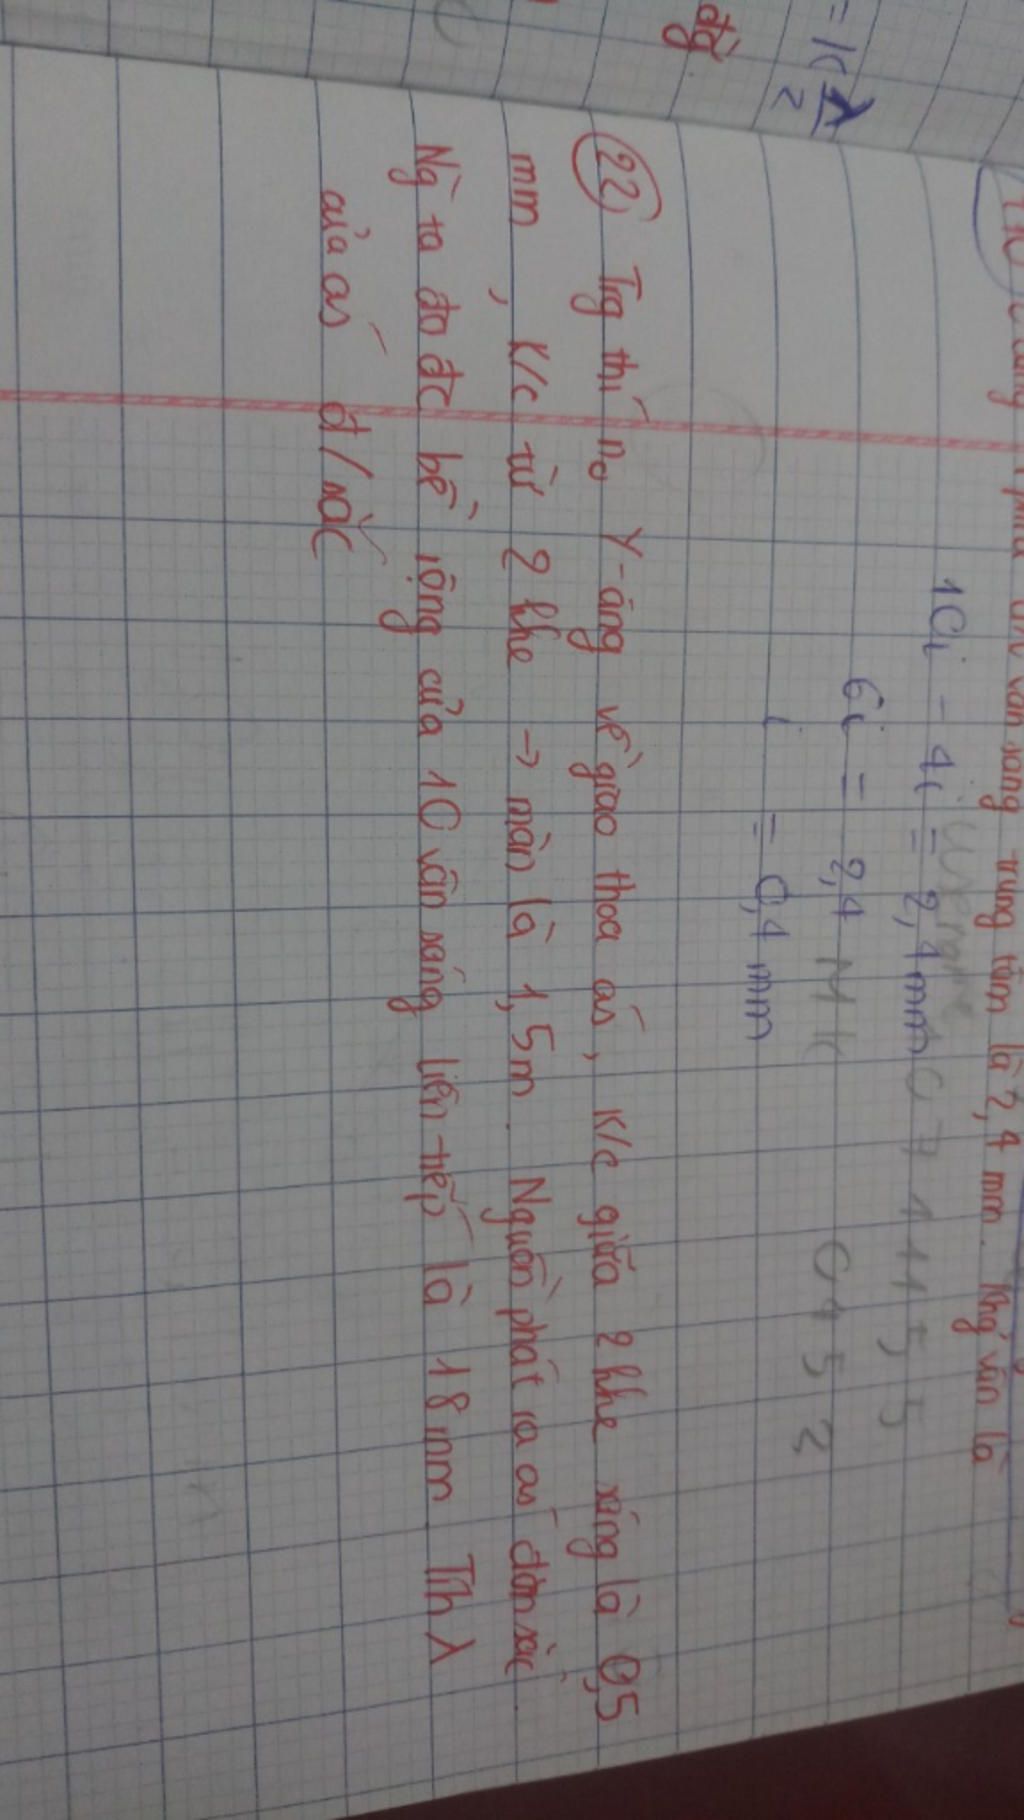 = k λ/2
đg
vân sáng trung tâm là 2,4 mm. Khg vân là
10i - 4i = 2,4mm
6i = 2,4
i = 0,4 mm
22, Trg thí no Y-âng về giao thoa as, k/c giữa 2 khe sáng là 0,5
mm, k/c từ 2 khe → màn là 1,5m. Nguồn phát ra as đơn sắc.
Ng ta đo đc bề rộng của 10 vân sáng liên tiếp là 18mm. Tính λ
của as đ/sắc